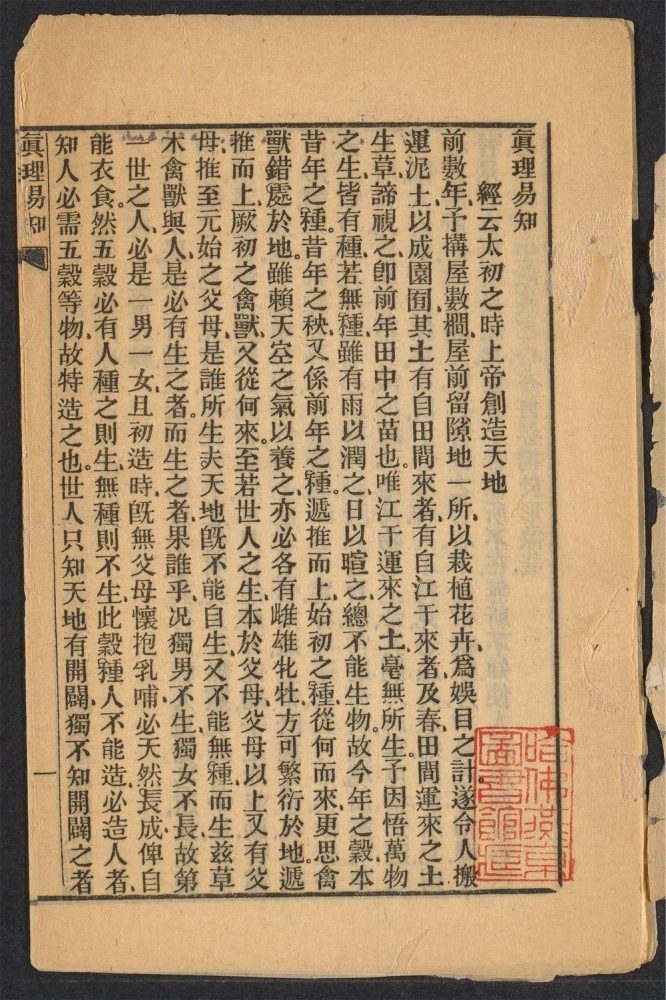 眞理易知
經云太初之時上帝創造天地
前數年、予搆屋數櫩、屋前留隙地一所、以栽植花卉、爲娛目之計。遂令人搬
運泥土、以成園囿、其土有自田間來者、有自江干來者、及春、田間運來之土
生草、諦視之、卽前年田中之苗也。唯江干運來之土、毫無所生。予因悟萬物
之生、皆有種、若無種、雖有雨以潤之、日以暄之、總不能生物。故今年之穀、本
昔年之種、昔年之秧、又係前年之種、遞推而上、始初之種、從何而來、更思禽
獸錯處於地、雖賴天空之氣以養之、亦必各有雌雄牝牡、方可繁衍於地、遞
推而上、厥初之禽獸、又從何來。至若世人之生、本於父母、父母以上、又有父
母、推至元始之父母、是誰所生、夫天地旣不能自生、又不能無種而生、兹草
木禽獸與人、是必有生之者、而生之者、果誰乎、况獨男不生、獨女不長、故第
一世之人、必是一男一女、且初造時、旣無父母懷抱乳哺、必天然長成、俾自
能衣食。然五穀必有人種之則生、無種則不生、此穀種人不能造、必造人者、
知人必需五穀等物、故特造之也。世人只知天地有開闢、獨不知開闢之者
眞理易知
一
哈佛漢和
圖書館